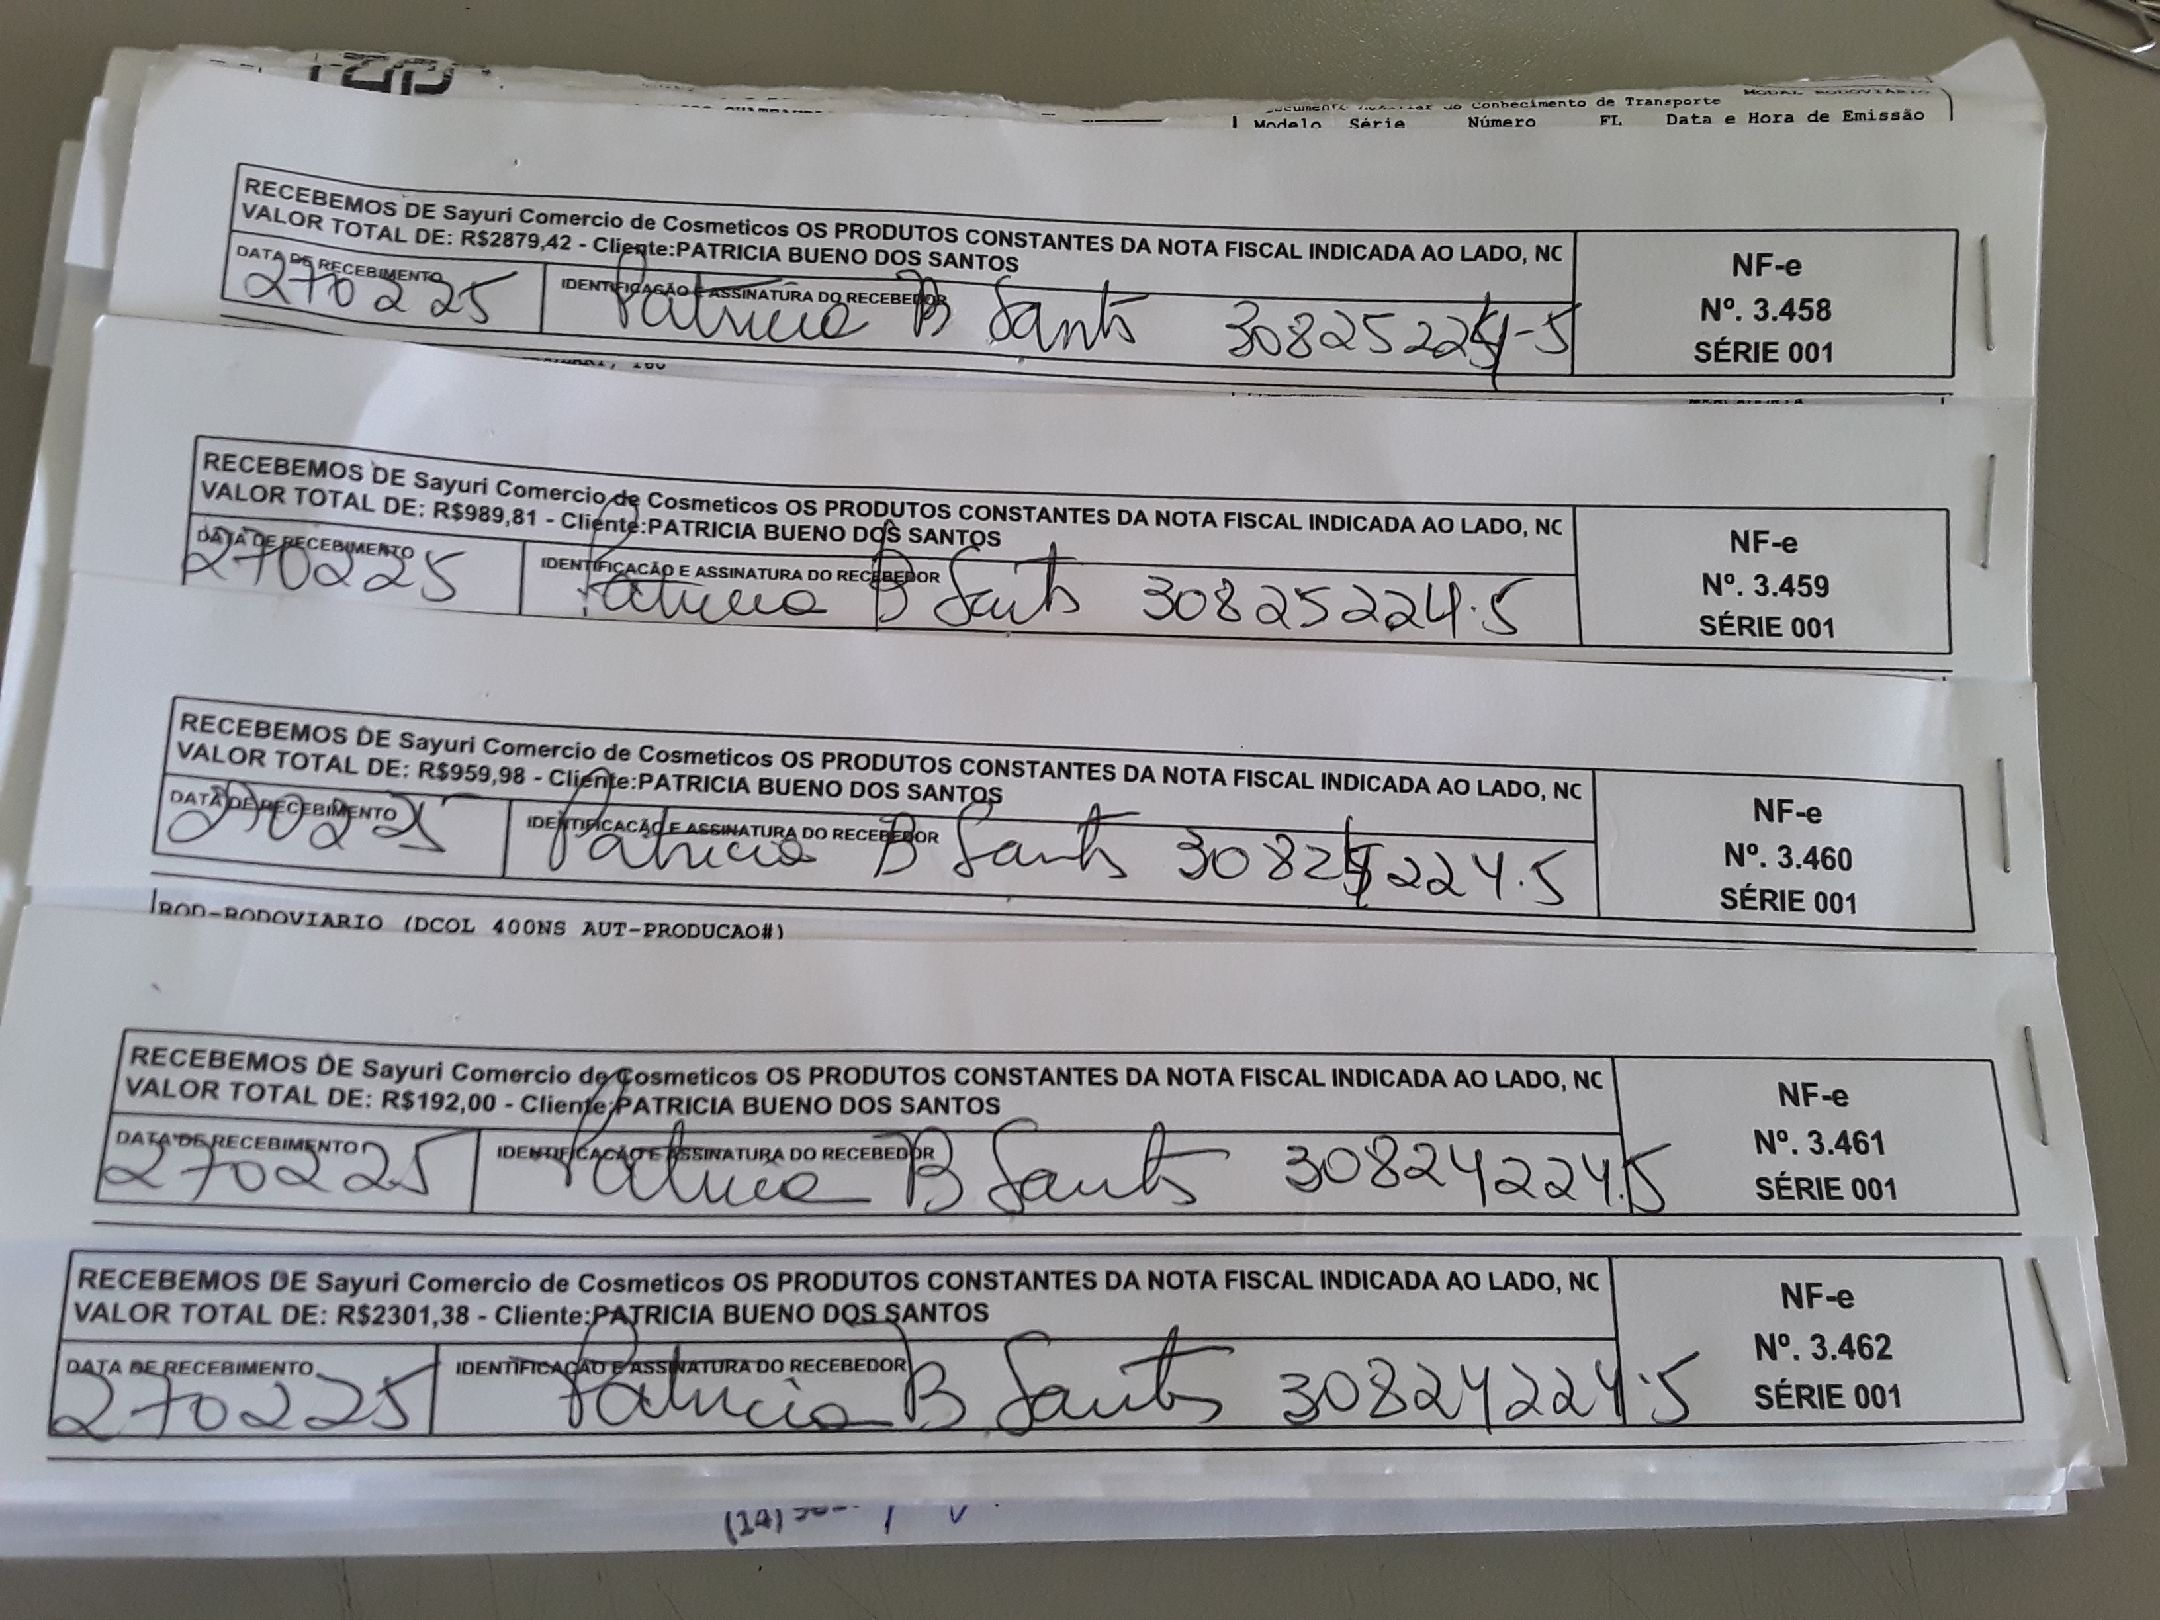 Documento Auxiliar do Conhecimento de Transporte MODAL RODOVIÁRIO
Modelo Série Número FL Data e Hora de Emissão
RECEBEMOS DE Sayuri Comercio de Cosmeticos OS PRODUTOS CONSTANTES DA NOTA FISCAL INDICADA AO LADO, NO
VALOR TOTAL DE: R$2879,42 - Cliente:PATRICIA BUENO DOS SANTOS
DATA DE RECEBIMENTO
270225
IDENTIFICAÇÃO E ASSINATURA DO RECEBEDOR
Patricia B Santos 30825224-5
NF-e
Nº. 3.458
SÉRIE 001
RECEBEMOS DE Sayuri Comercio de Cosmeticos OS PRODUTOS CONSTANTES DA NOTA FISCAL INDICADA AO LADO, NO
VALOR TOTAL DE: R$989,81 - Cliente:PATRICIA BUENO DOS SANTOS
DATA DE RECEBIMENTO
270225
IDENTIFICAÇÃO E ASSINATURA DO RECEBEDOR
Patricia B Santos 30825224.5
NF-e
Nº. 3.459
SÉRIE 001
RECEBEMOS DE Sayuri Comercio de Cosmeticos OS PRODUTOS CONSTANTES DA NOTA FISCAL INDICADA AO LADO, NO
VALOR TOTAL DE: R$959,98 - Cliente:PATRICIA BUENO DOS SANTOS
DATA DE RECEBIMENTO
270225
IDENTIFICAÇÃO E ASSINATURA DO RECEBEDOR
Patricia B Santos
NF-e
Nº. 3.460
SÉRIE 001
ROD-RODOVIARIO (DCOL 400NS AUT-PRODUCAO#)
RECEBEMOS DE Sayuri Comercio de Cosmeticos OS PRODUTOS CONSTANTES DA NOTA FISCAL INDICADA AO LADO, NO
VALOR TOTAL DE: R$192,00 - Cliente:PATRICIA BUENO DOS SANTOS
DATA DE RECEBIMENTO
270225
IDENTIFICAÇÃO E ASSINATURA DO RECEBEDOR
Patricia B Santos 308242224.5
NF-e
Nº. 3.461
SÉRIE 001
RECEBEMOS DE Sayuri Comercio de Cosmeticos OS PRODUTOS CONSTANTES DA NOTA FISCAL INDICADA AO LADO, NO
VALOR TOTAL DE: R$2301,38 - Cliente:PATRICIA BUENO DOS SANTOS
DATA DE RECEBIMENTO
270225
IDENTIFICAÇÃO E ASSINATURA DO RECEBEDOR
Patricia B Santos 30824224.5
NF-e
Nº. 3.462
SÉRIE 001